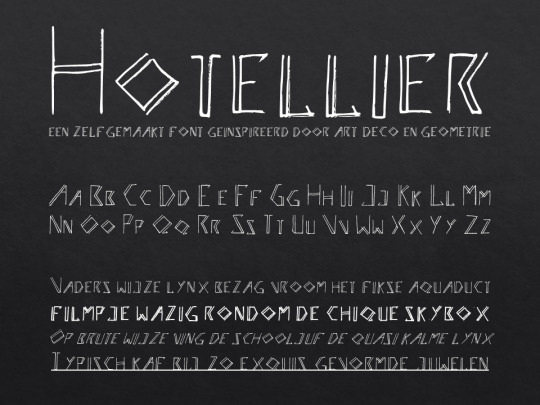 Hotellier
EEN ZELFGEMAAKT FONT GEINSPIREERD DOOR ART DECO EN GEOMETRIE
Aa Bb Cc Dd Ee Ff Gg Hh Ii Jj Kk Ll Mm
Nn Oo Pp Qq Rr Ss Tt Uu Vv Ww Xx Yy Zz
Vaders wijze lynx bezag vroom het fikse aquaduct
filmpje wazig rondom de chique skybox
Op brute wijze ving de schooljuf de quasi kalme lynx
Typisch kaf bij zo exquis gevormde juwelen